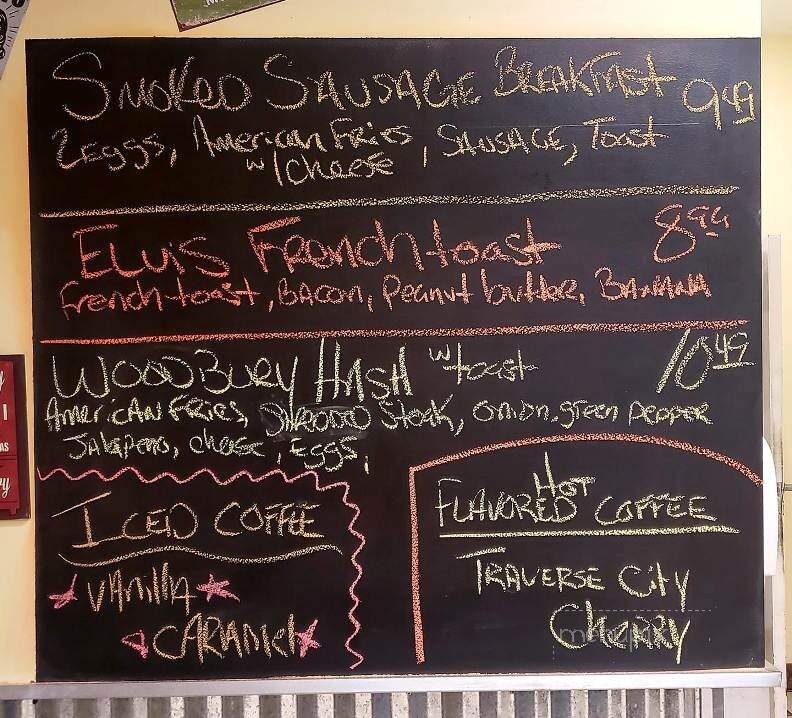 SMOKED SAUSAGE BREAKFAST 949
2 EGGS, American Fries w/cheese, SAUSAGE, Toast
ELVIS French toast 8.99
french toast, BACON, Peanut butter, BANANA
WOODBURY HASH w toast 10.49
AMERICAN FRIES, SHREDDED Steak, onion, green pepper
JALAPENO, cheese, EGGS,
ICED COFFEE
VANILLA
CARAMEL
HOT
FLAVORED COFFEE
TRAVERSE CITY
CHERRY
menupix